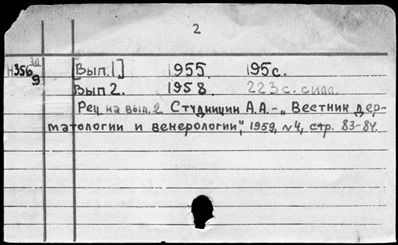 2
Н356 [Вып.1] 1955 195с.
9 Вып 2. 1958. 223с. силл.
Рец на вып. 2. Студницин А.А.-„Вестник дер-
матологии и венерологии", 1959, №4, стр. 83-84.